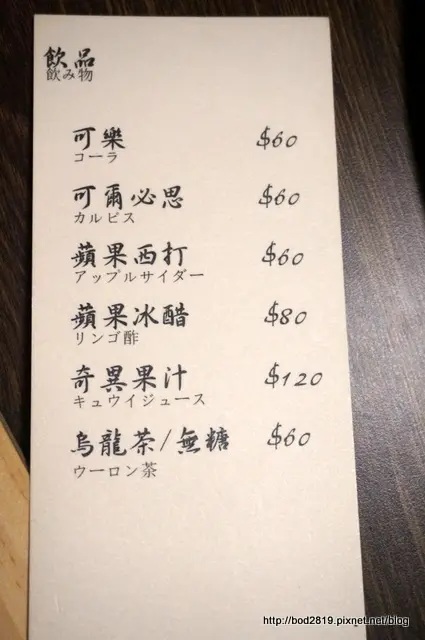 飲品
飲み物
可樂 $60
コーラ
可爾必思 $60
カルピス
蘋果西打 $60
アップルサイダー
蘋果冰醋 $80
リンゴ酢
奇異果汁 $120
キュウイジュース
烏龍茶/無糖 $60
ウーロン茶
http://bod2819.pixnet.net/blog